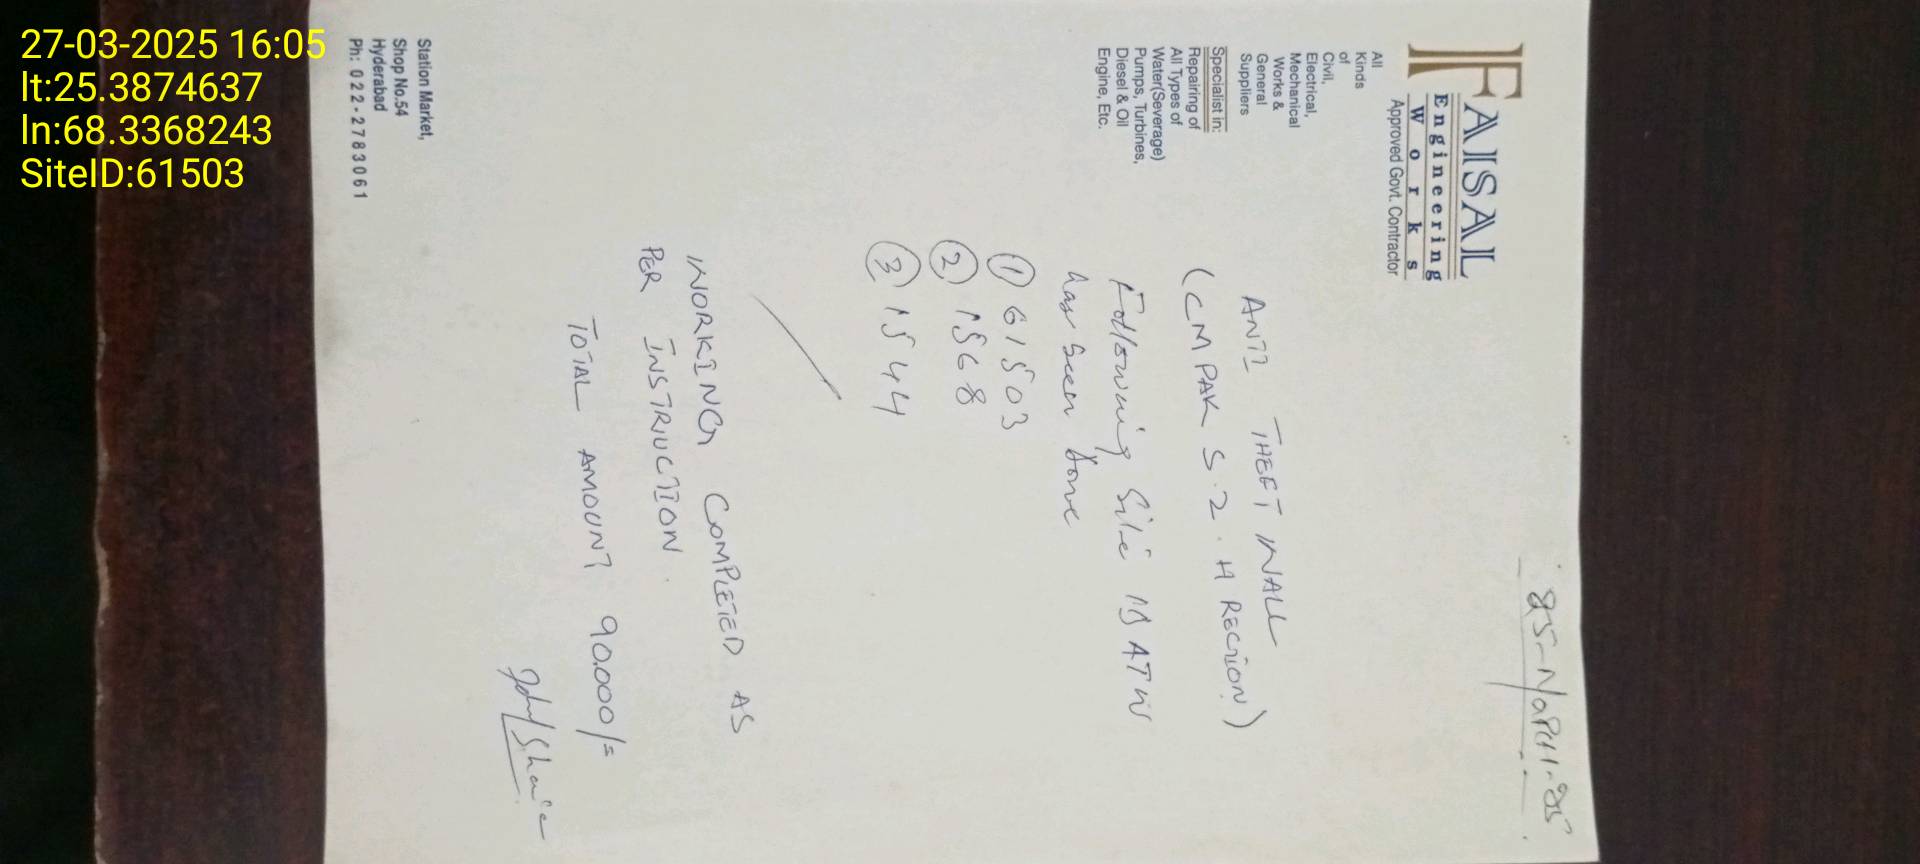 27-03-2025 16:05
lt:25.3874637
ln:68.3368243
SiteID:61503
FAISAL
Engineering
Works
Approved Govt. Contractor
All
Kinds
of
Civil,
Electrical,
Mechanical
Works &
General
Suppliers
Specialist in:
Repairing of
All Types of
Water(Severage)
Pumps, Turbines,
Diesel & Oil
Engine, Etc.
ANTI THEFT WALL
(CMPAK S-2. H REGION)
Following Site ATW
has been done
1 61503
2 1568
3 1544
WORKING COMPLETED AS
PER INSTRUCTION.
TOTAL AMOUNT 90.000/=
Station Market,
Shop No.54
Hyderabad
Ph: 022-2783061